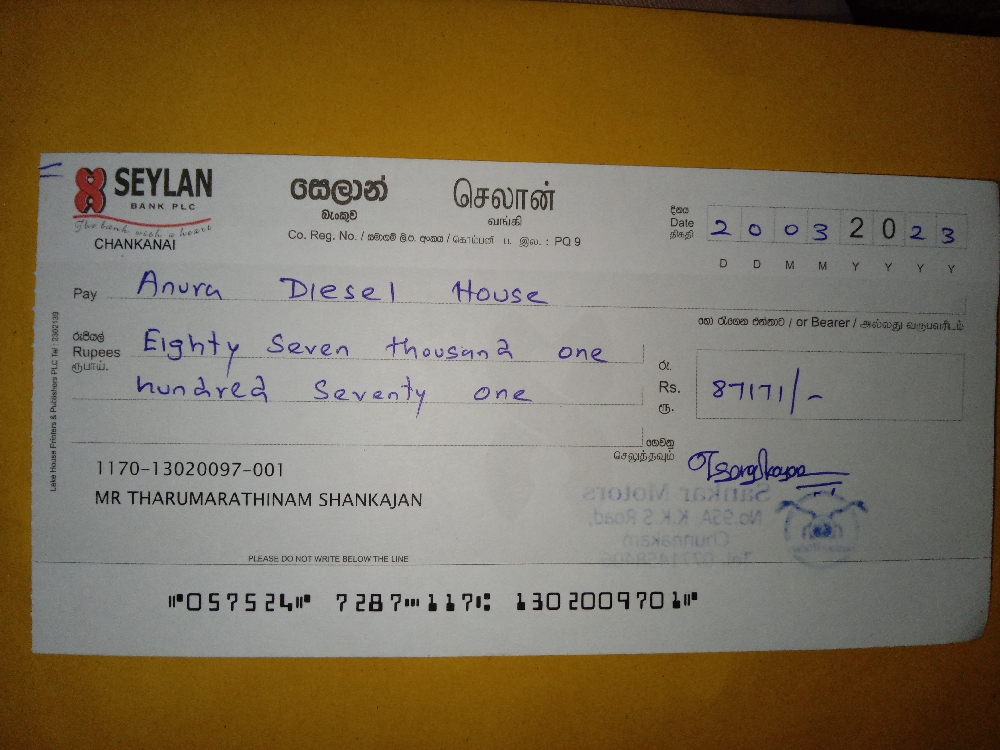 SEYLAN
BANK PLC
The bank with a heart
CHANKANAI
සෙලාන්
බැංකුව
செலான்
வங்கி
Co. Reg. No. / සමාගම් ලි.ප. අංකය / கொம்பனி ப. இல. : PQ 9
දිනය
Date
திகதி
2 0 0 3 2 0 2 3
D D M M Y Y Y Y
Pay Anura Diesel House
හෝ රැගෙන එන්නාට / or Bearer / அல்லது வருபவரிடம்
රුපියල්
Rupees
ரூபாய்.
Eighty Seven thousand one
hundred Seventy one
රු.
Rs.
ரூ.
87171/-
ගෙවනු
செலுத்தவும்
1170-13020097-001
MR THARUMARATHINAM SHANKAJAN
Sankar Motors
No.95A, K.K.S Road,
Chunnakam
PLEASE DO NOT WRITE BELOW THE LINE
057524 7287 117 1302009701
Lake House Printers & Publishers PLC Tel : 2302139